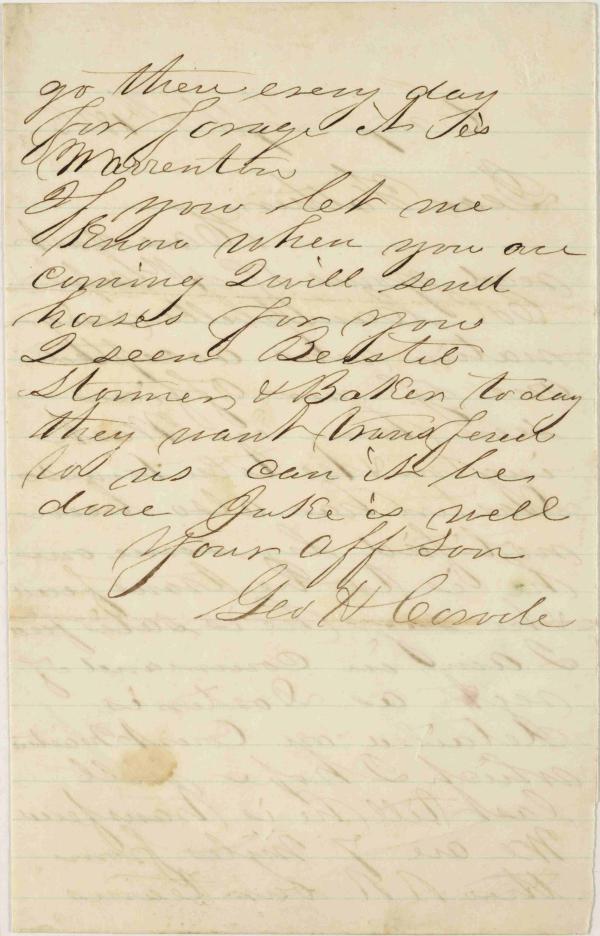 go there every day
for forage it is
Warrenton
If you let me
know when you are
coming I will send
horses for you
I seen
Stormer & Baker to day
they want transfered
to us can it be
done Juke is well
Your aff son
Geo H Covode